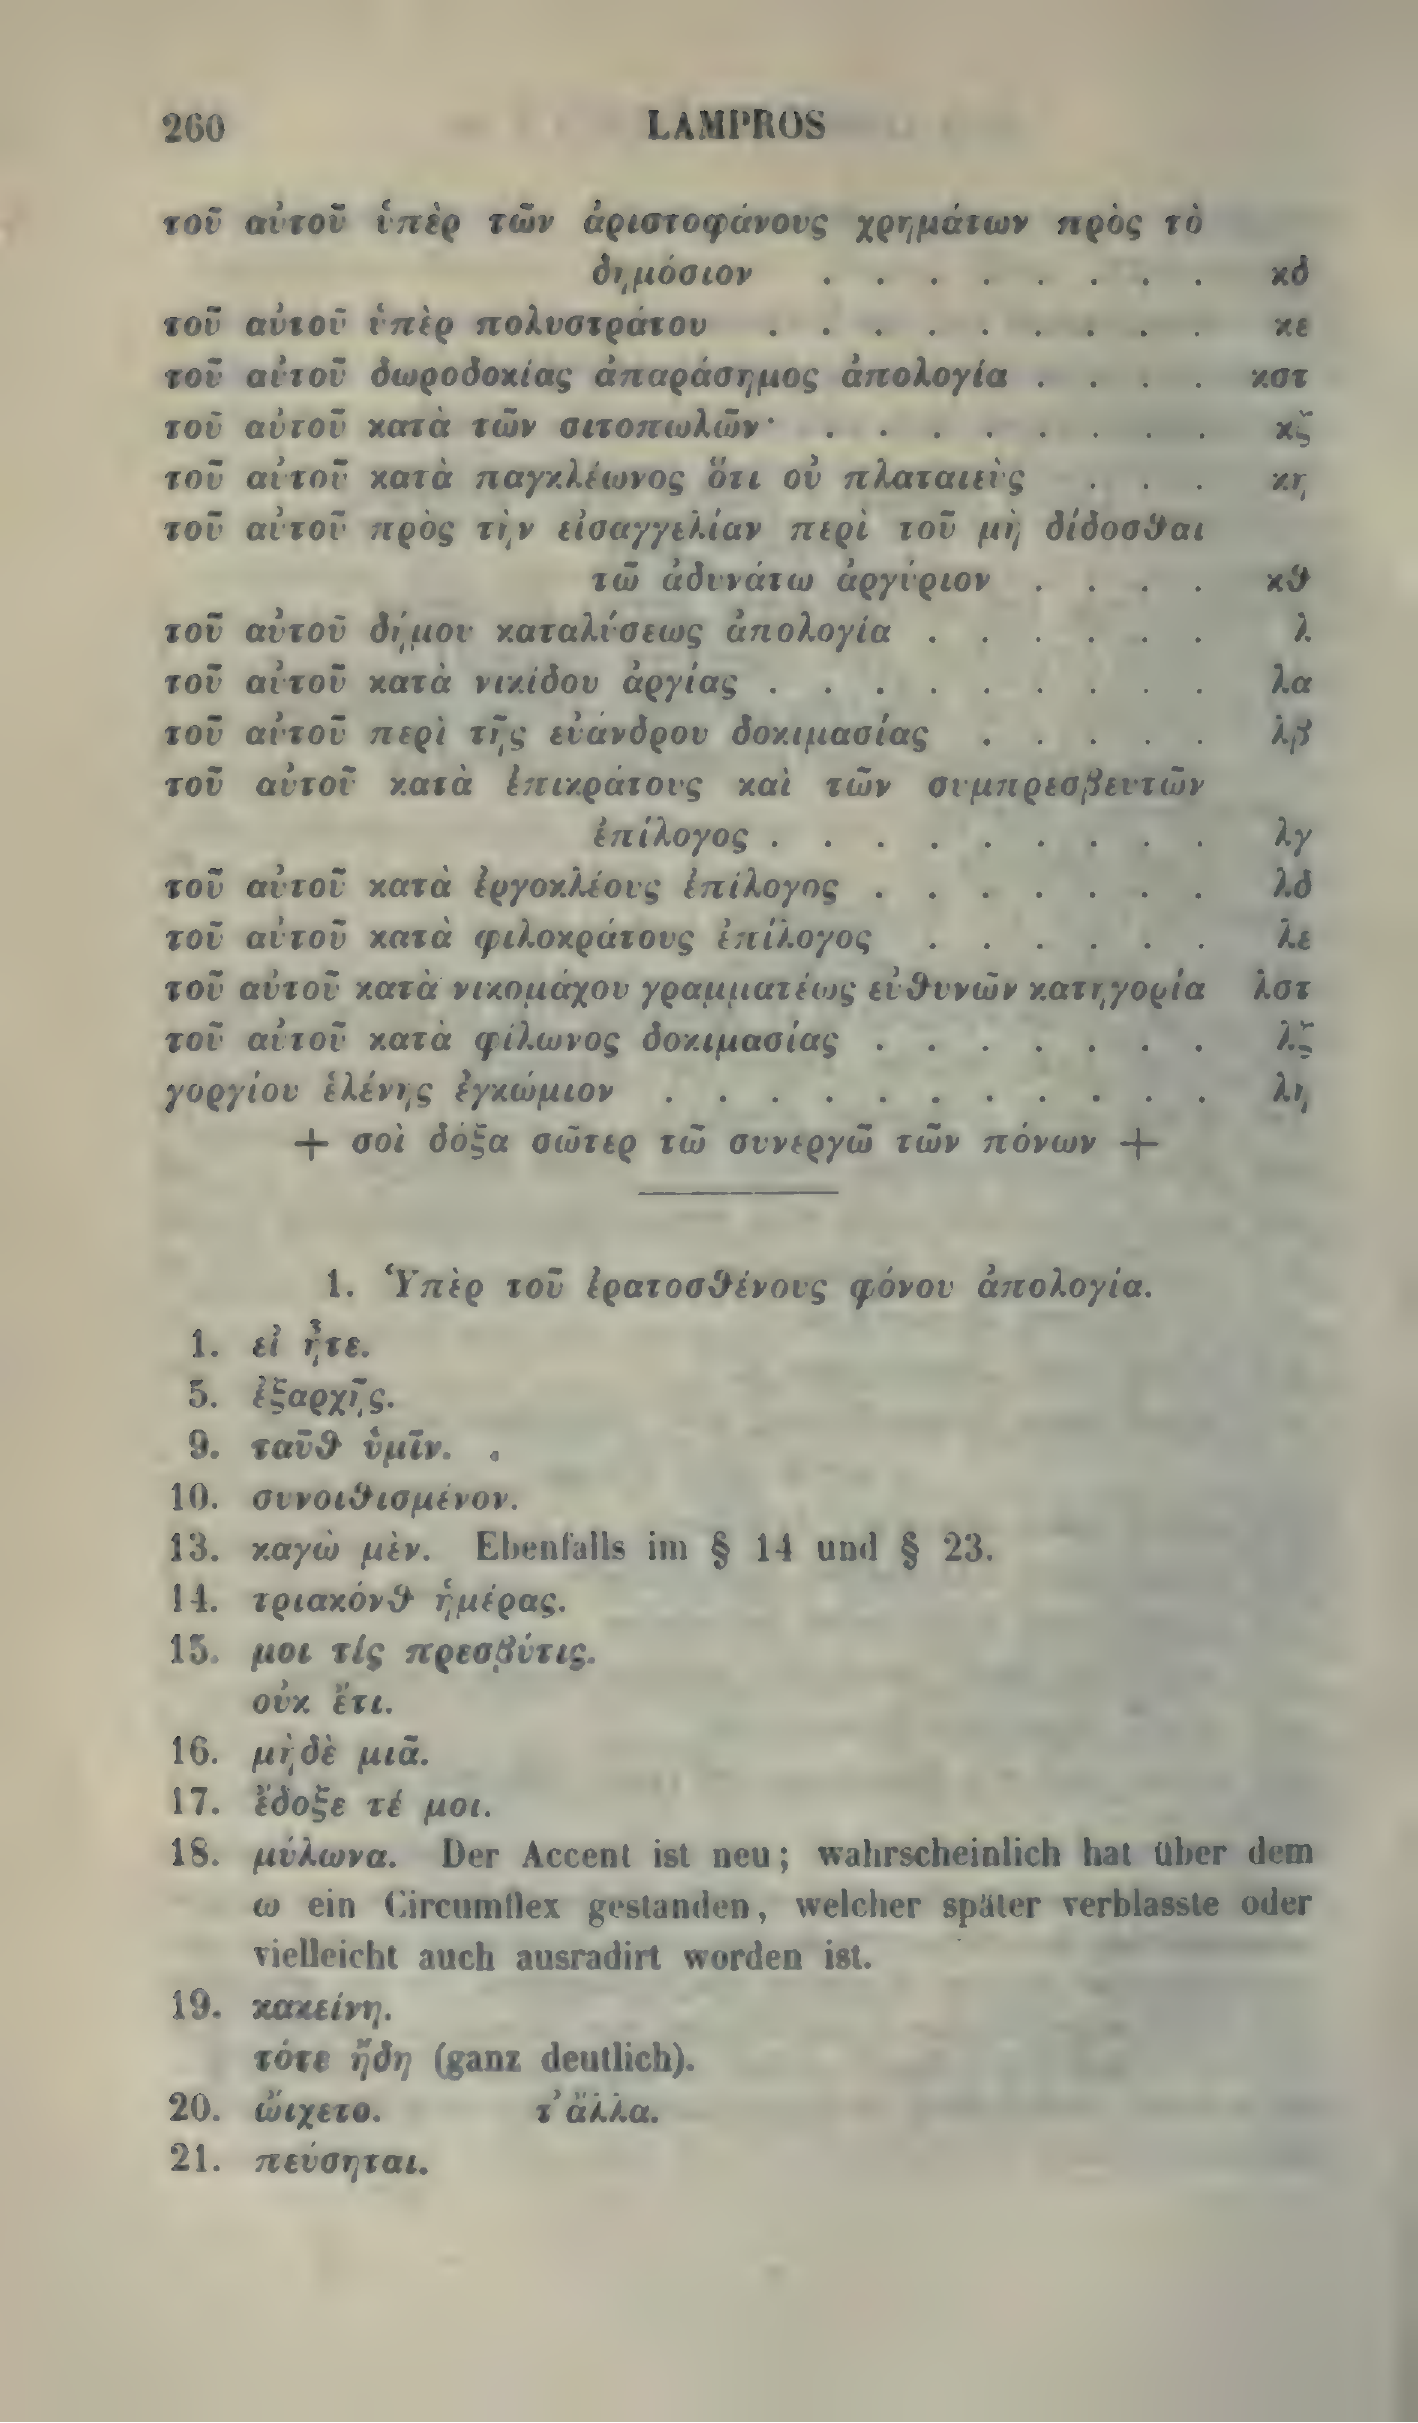 260 LAMPROS
τοῦ αὐτοῦ ὑπὲρ τῶν ἀριστοφάνους χρημάτων πρὸς τὸ
δημόσιον . . . . . . . . κδ
τοῦ αὐτοῦ ὑπὲρ πολυστράτου . . . . . . . . . κε
τοῦ αὐτοῦ δωροδοκίας ἀπαράσημος ἀπολογία . . . . κστ
τοῦ αὐτοῦ κατὰ τῶν σιτοπωλῶν· . . . . . . . . κζ
τοῦ αὐτοῦ κατὰ παγκλέωνος ὅτι οὐ πλαταιεὺς . . . κη
τοῦ αὐτοῦ πρὸς τὴν εἰσαγγελίαν περὶ τοῦ μὴ δίδοσθαι
τῶ ἀδυνάτω ἀργύριον . . . . κθ
τοῦ αὐτοῦ δήμου καταλύσεως ἀπολογία . . . . . . λ
τοῦ αὐτοῦ κατὰ νικίδου ἀργίας . . . . . . . . . λα
τοῦ αὐτοῦ περὶ τῆς εὐάνδρου δοκιμασίας . . . . . λβ
τοῦ αὐτοῦ κατὰ ἐπικράτους καὶ τῶν συμπρεσβευτῶν
ἐπίλογος . . . . . . . . . λγ
τοῦ αὐτοῦ κατὰ ἐργοκλέους ἐπίλογος . . . . . . . λδ
τοῦ αὐτοῦ κατὰ φιλοκράτους ἐπίλογος . . . . . . λε
τοῦ αὐτοῦ κατὰ νικομάχου γραμματέως εὐθυνῶν κατηγορία λστ
τοῦ αὐτοῦ κατὰ φίλωνος δοκιμασίας . . . . . . . λζ
γοργίου ἑλένης ἐγκώμιον . . . . . . . . . . . λη
+ σοὶ δόξα σῶτερ τῶ συνεργῶ τῶν πόνων +
1. Ὑπὲρ τοῦ ἐρατοσθένους φόνου ἀπολογία.
1. εἰ ἦτε.
5. ἐξαρχῆς.
9. ταῦθ ὑμῖν.
10. συνοιθισμένον.
13. καγὼ μὲν. Ebenfalls im § 14 und § 23.
14. τριακόνθ ἡμέρας.
15. μοι τίς πρεσβύτις.
οὐκ ἔτι.
16. μὴδὲ μιᾶ.
17. ἔδοξε τέ μοι.
18. μύλωνα. Der Accent ist neu; wahrscheinlich hat über dem
ω ein Circumflex gestanden, welcher später verblasste oder
vielleicht auch ausradirt worden ist.
19. κακείνη.
τότε ἤδη (ganz deutlich).
20. ὤιχετο. τ᾽ ἄλλα.
21. πεύσηται.